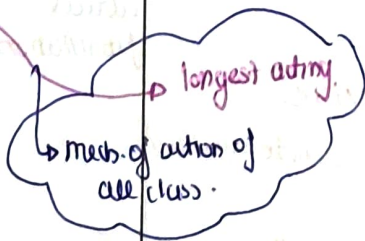 longest acting.
mech. of action of
all class.